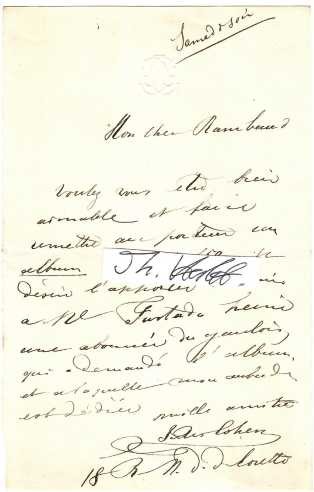 Samedi soir
Mon cher Rambaud
Voulez vous être bien
aimable et faire
remettre au porteur un
album
désire l'apporter
a Mme Furtado Heine
une abonnée du gaulois,
qui a demandé l'album,
et a laquelle mon aubade
est dédiée
mille amitiés
Jules Cohen
18 R N. D. de Lorette